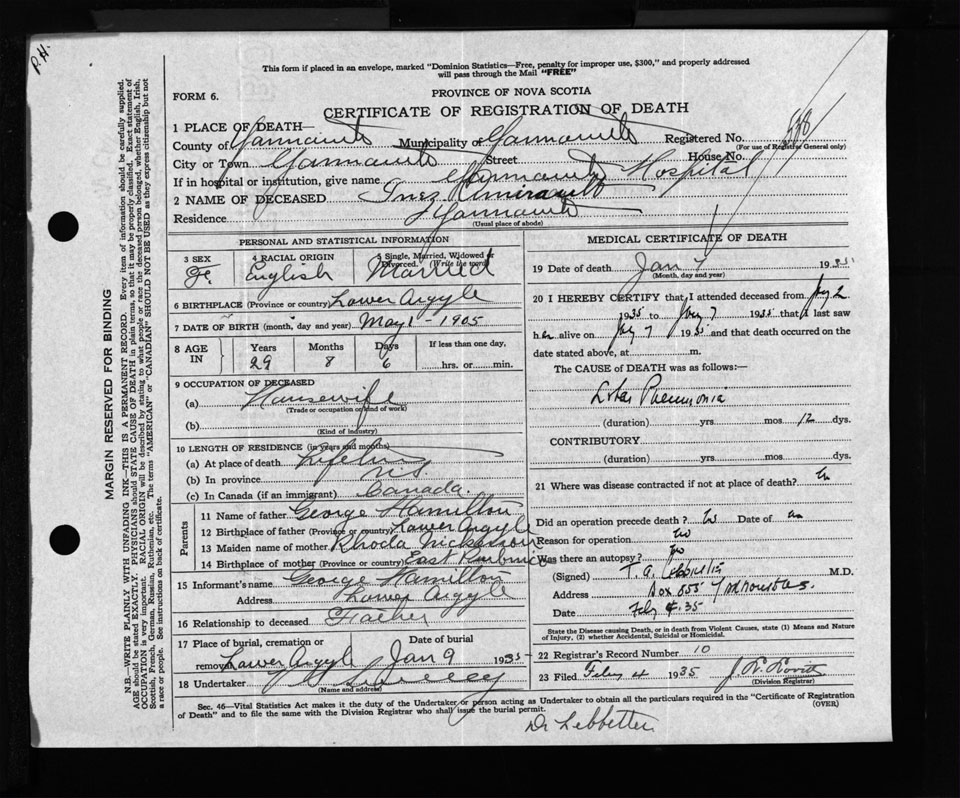 P.H.
This form if placed in an envelope, marked "Dominion Statistics—Free, penalty for improper use, $300," and properly addressed
will pass through the Mail "FREE"
FORM 6.
PROVINCE OF NOVA SCOTIA
CERTIFICATE OF REGISTRATION OF DEATH
1 PLACE OF DEATH—
County of Yarmouth Municipality of Yarmouth Registered No.
(For use of Registrar General only)
City or Town Yarmouth Street House No.
If in hospital or institution, give name Yarmouth Hospital
2 NAME OF DECEASED Inez Amirault
Residence Yarmouth
(Usual place of abode)
PERSONAL AND STATISTICAL INFORMATION
3 SEX Fe.
4 RACIAL ORIGIN English
5 Single, Married, Widowed or Divorced. (Write the word) Married
6 BIRTHPLACE (Province or country) Lower Argyle
7 DATE OF BIRTH (month, day and year) May 1 - 1905
8 AGE IN Years 29 Months 8 Days 6 If less than one day, hrs. or min.
9 OCCUPATION OF DECEASED
(a) Housewife
(Trade or occupation or kind of work)
(b)
(Kind of industry)
10 LENGTH OF RESIDENCE (in years and months)
(a) At place of death Lifetime
(b) In province N.S.
(c) In Canada (if an immigrant) Canada.
Parents
11 Name of father George Hamilton
12 Birthplace of father (Province or country) Lower Argyle
13 Maiden name of mother Rhoda Nickerson
14 Birthplace of mother (Province or country) East Pubnico
15 Informant's name George Hamilton
Address Lower Argyle
16 Relationship to deceased Father
17 Place of burial, cremation or removal Lower Argyle Date of burial Jan 9 1935
18 Undertaker Sweeney
(Name and address)
MEDICAL CERTIFICATE OF DEATH
19 Date of death Jan 7 1935
(Month, day and year)
20 I HEREBY CERTIFY that I attended deceased from Jany 2
1935 to Jany 7 1935 that I last saw
her alive on Jany 7 1935 and that death occurred on the
date stated above, at m.
The CAUSE OF DEATH was as follows:—
Lobar Pneumonia
(duration) yrs mos 12 dys.
CONTRIBUTORY
(duration) yrs. mos. dys.
21 Where was disease contracted if not at place of death?
Did an operation precede death? No Date of no
Reason for operation no
Was there an autopsy? no
(Signed) T. A. Lebbetter M.D.
Address Box 855 Yarmouth N.S.
Date Feby 4. 35
State the Disease causing Death, or in death from Violent Causes, state (1) Means and Nature
of Injury, (2) whether Accidental, Suicidal or Homicidal.
22 Registrar's Record Number 10
23 Filed Feby 4 1935
(Division Registrar)
Sec. 46—Vital Statistics Act makes it the duty of the Undertaker or person acting as Undertaker to obtain all the particulars required in the "Certificate of Registration
of Death" and to file the same with the Division Registrar who shall issue the burial permit.
(OVER)
Dr Lebbetter
MARGIN RESERVED FOR BINDING
N.B.—WRITE PLAINLY WITH UNFADING INK—THIS IS A PERMANENT RECORD. Every item of information should be carefully supplied.
AGE should be stated EXACTLY. PHYSICIANS should STATE CAUSE OF DEATH in plain terms, so that it may be properly classified. Exact statement of
OCCUPATION is very important. RACIAL ORIGIN will be described by stating to what people or race the deceased person belonged, whether English, Irish,
Scottish, French, German, Russian, Ruthenian, etc. The terms "AMERICAN" or "CANADIAN" SHOULD NOT BE USED as they express citizenship but not
a race or people. See instructions on back of certificate.